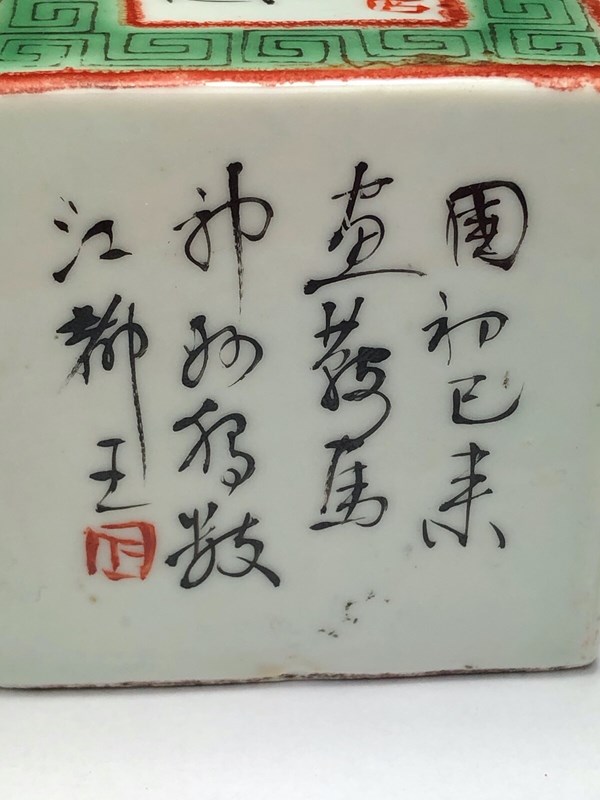 國初已來
畫鞍馬
神妙獨數
江都王